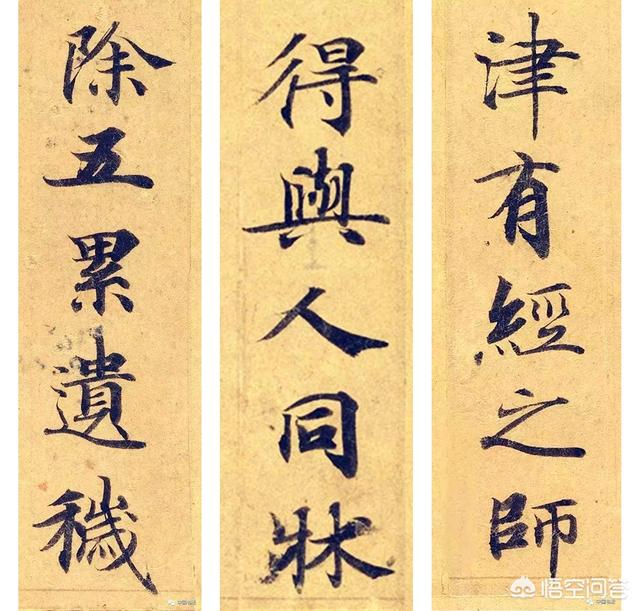 津有經之師
得與人同牀
除五累遺穢
悟空问答